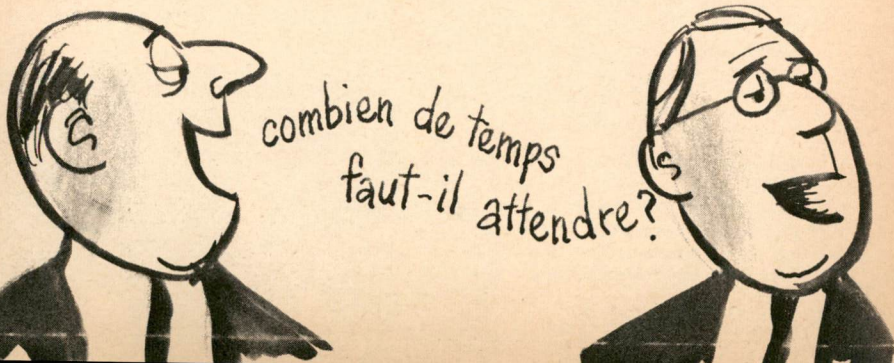 combien de temps
faut-il attendre?